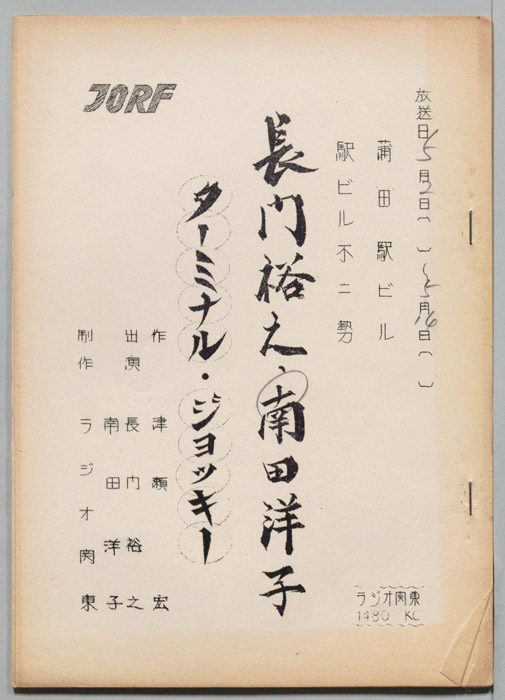 放送日 5月2日( )〜5月16日( )
蒲田駅ビル
駅ビル不二勢
長門裕之、南田洋子
ターミナル・ジョッキー
JORF
作 津瀬宏
出演 長門裕之
南田洋子
制作 ラジオ関東
ラジオ関東
1480 KC